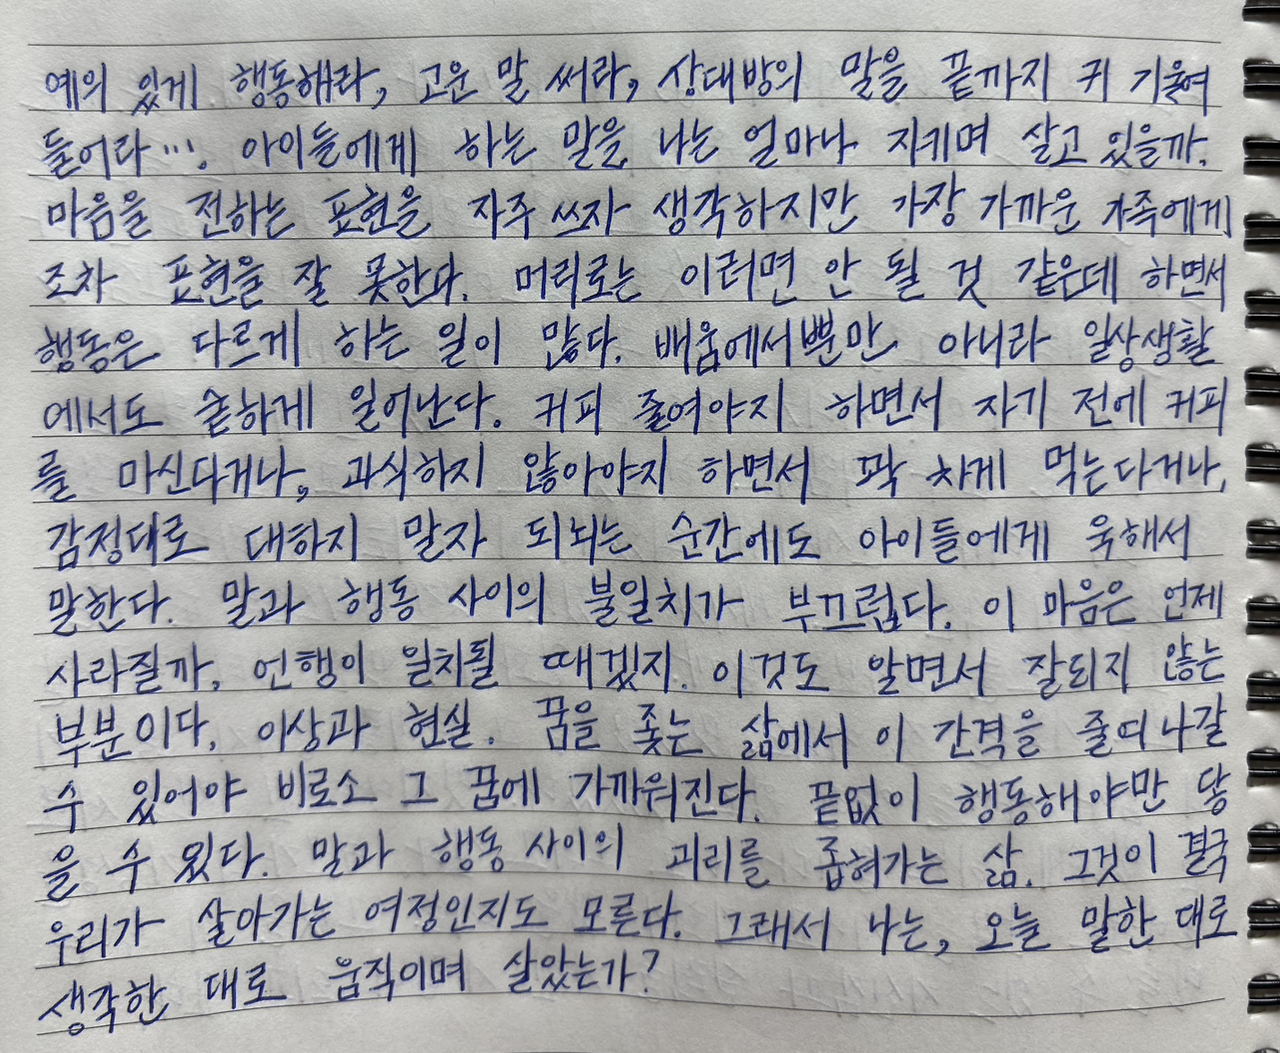 예의 있게 행동해라, 고운 말 써라, 상대방의 말을 끝까지 귀 기울여
들어라…. 아이들에게 하는 말을 나는 얼마나 지키며 살고 있을까.
마음을 전하는 표현을 자주 쓰자 생각하지만 가장 가까운 가족에게
조차 표현을 잘 못한다. 머리로는 이러면 안 될 것 같은데 하면서
행동은 다르게 하는 일이 많다. 배움에서뿐만 아니라 일상생활
에서도 숱하게 일어난다. 커피 줄여야지 하면서 자기 전에 커피
를 마신다거나, 과식하지 않아야지 하면서 꽉 차게 먹는다거나,
감정대로 대하지 말자 되뇌는 순간에도 아이들에게 욱해서
말한다. 말과 행동 사이의 불일치가 부끄럽다. 이 마음은 언제
사라질까, 언행이 일치될 때겠지. 이것도 알면서 잘되지 않는
부분이다. 이상과 현실. 꿈을 좇는 삶에서 이 간격을 줄여나갈
수 있어야 비로소 그 꿈에 가까워진다. 끝없이 행동해야만 닿
을 수 있다. 말과 행동 사이의 괴리를 좁혀가는 삶. 그것이 결국
우리가 살아가는 여정인지도 모른다. 그래서 나는, 오늘 말한 대로
생각한 대로 움직이며 살았는가?